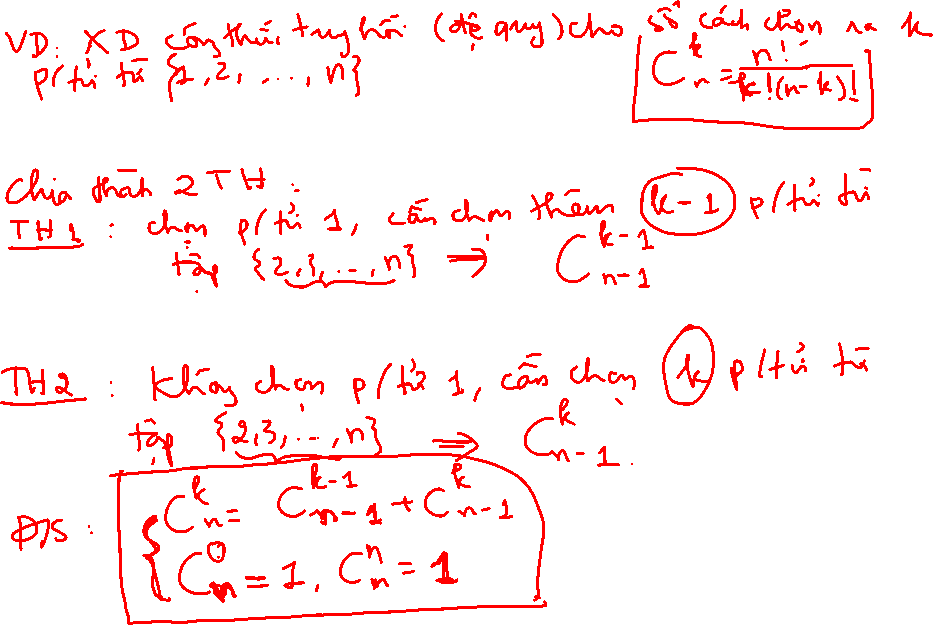 VD: XD công thức truy hồi (đệ quy) cho số cách chọn ra k
p/tử từ {1, 2, ..., n} C_n^k = n!/(k!(n-k)!)
Chia thành 2 TH:
TH1: chọn p/tử 1, cần chọn thêm k-1 p/tử từ
tập {2,3,...,n} → C_{n-1}^{k-1}
TH2: Không chọn p/tử 1, cần chọn k p/tử từ
tập {2,3,...,n} ⇒ C_{n-1}^k.
Đ/S: { C_n^k = C_{n-1}^{k-1} + C_{n-1}^k
C_n^0 = 1, C_n^n = 1